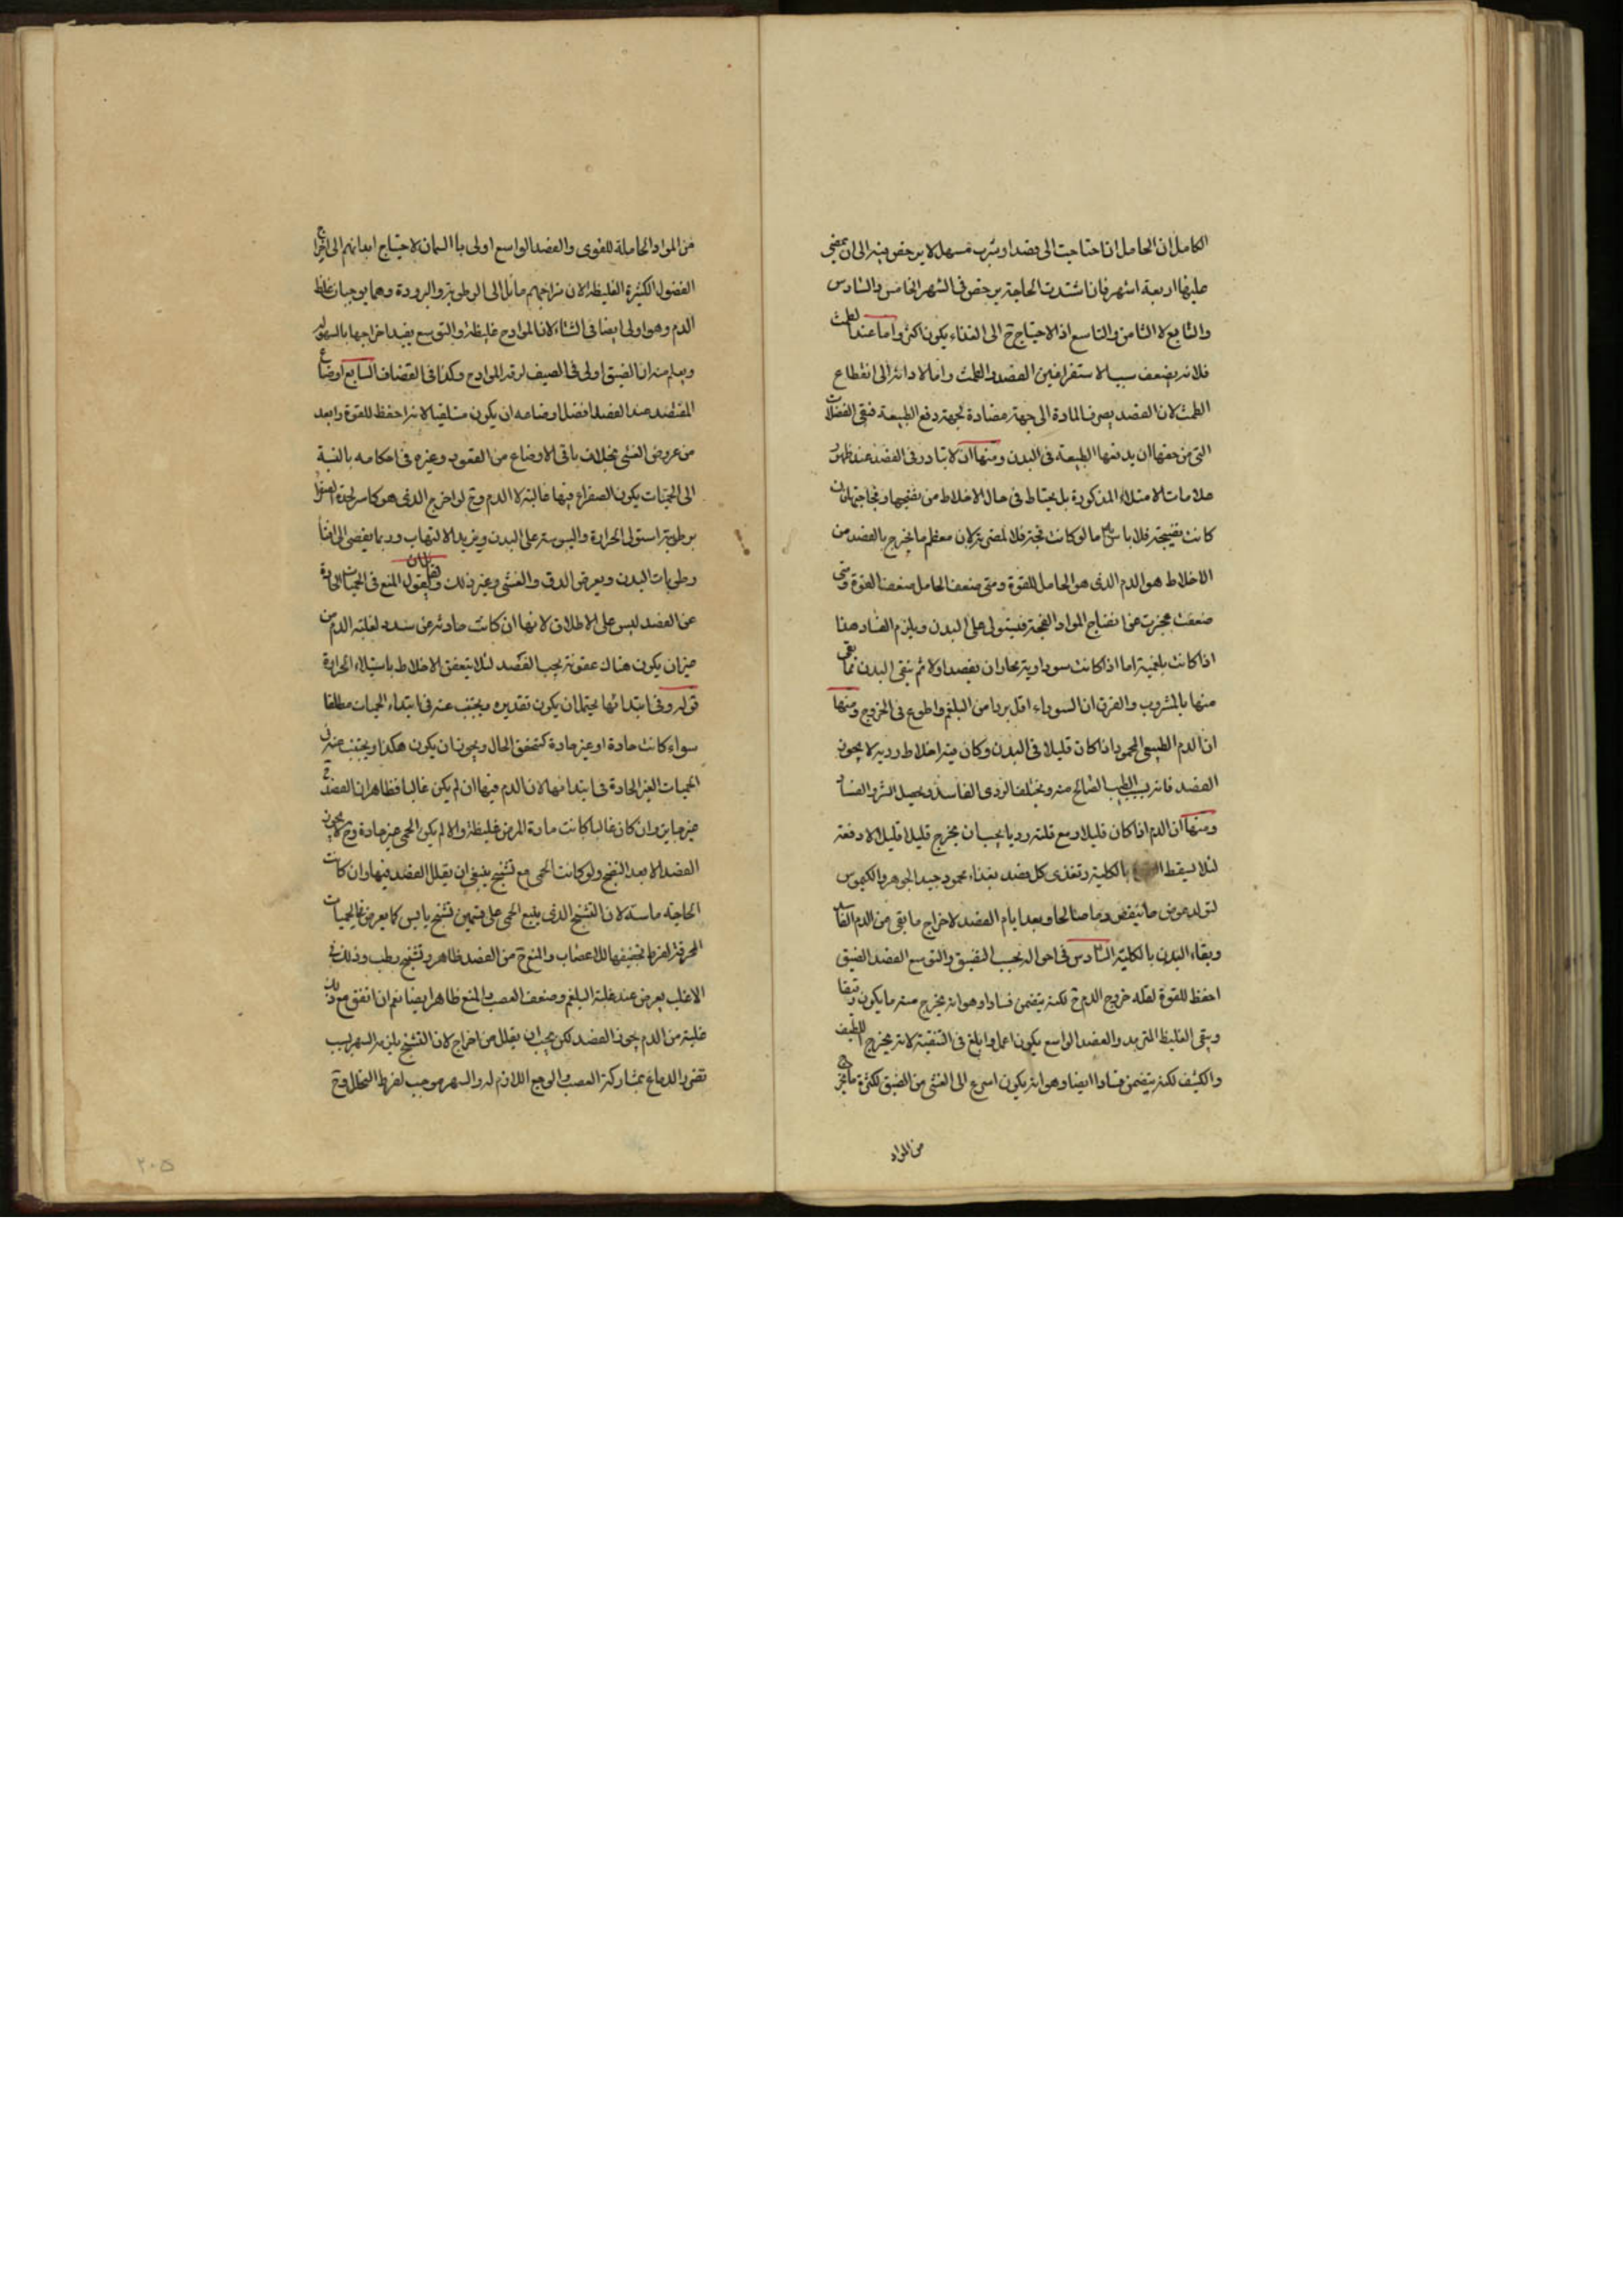 الكامل ان الحامل اذا احتاجت الى فصد او شرب مسهل لا يرخص فيه الى ان يمضى
عليها اربعة اشهر فان اشتدت الحاجة يرخص فى الشهر الخامس والسادس
والسابع لا الثامن والتاسع اذ الاحتياج ح الى الغذاء يكون اكثر واما عند الطمث
فلانه يضعف بسبب الاستفراغين الفصد والطمث واما لادائه الى انقطاع
الطمث لان الفصد يصرف المادة الى جهة مضادة لجهة دفع الطبيعة فتبقى الفضلات
التى من حقها ان يدفعها الطبيعة فى البدن ومنها ان لا تبادر فى الفصد عند ظهور
علامات الامتلاء المذكورة بل يحتاط فى حال الاخلاط من نضجها وفجاجتها فان
كانت نضيجة فلا باس به اما لو كانت فجة فلا لمضرته لان معظم ما يخرج بالفصد من
الاخلاط هو الدم الذى هو الحامل للقوة ومتى ضعف الحامل ضعف القوة ومتى
ضعفت عجزت عن انضاج المواد الفجة فيستولى على البدن ويلزم الفساد هذا
اذا كانت بلغمية اما اذا كانت سوداوية جاز ان يفصد اولا ثم ينقى البدن مما بقى
منها بالمشروب والفرق ان السوداء اقل بردا من البلغم واطوع فى الخروج ومنها
ان الدم الطبيعى المحمود اذا كان قليلا فى البدن وكان فيه اخلاط ردية لا يجوز
الفصد فانه يسلب الطيب الصالح منه ويختلف الردى الفاسد ويحصل الشر والفساد
ومنها ان الدم اذا كان قليلا ومع قلته رديا يجب ان يخرج قليلا قليلا لا دفعة
لئلا يسقط بالكلية وتغذى كل فصد بغذاء محمود جيد الجوهر والكيموس
لتولد عوض ما ينقص دما صالحا وبعد ايام الفصد لاخراج ما بقى من الدم الفاسد
وبقاء البدن بالكلية السادس فى احواله بحسب التضييق والتوسيع الفصد الضيق
احفظ للقوة لقلة خروج الدم ح لكنه يتضمن فسادا وهو انه يخرج منه ما يكون رقيقا
ويبقى الغليظ والفصد الواسع يكون اعمل وابلغ فى التنقية لانه يخرج اللطيف
والكثيف لكنه يتضمن فسادا ايضا وهو انه يكون اسرع الى الغشى من الضيق لكثرة ما يخرج
من المواد
من المواد الحاملة للقوى والفصد الواسع اولى بالسمان لاحتياج ابدانهم الى اخراج
الفضول الكثيرة الغليظة لان مزاجهم مائل الى الرطوبة والبرودة وهما يوجبان غلظ
الدم وهو اولى ايضا فى الشتاء لان المواد ح غليظة والتوسيع يفيد اخراجها بالسهولة
ويعلم منه ان الضيق اولى فى الصيف لرقة المواد ح وكذا فى القضاف السابع اوضاع
المفتصد عند الفصد افضل اوضاعه ان يكون مستلقيا لانه احفظ للقوة وابعد
من عروض الغشى بخلاف باقى الاوضاع من القعود وغيره فى احكامه بالنسبة
الى الحميات يكون الصفراء فيها غالبة لا الدم وح لو اخرج الدم الذى هو كاسر لحدة الصفراء
برطوبته استولى الحرارة واليبوسة على البدن ويزيد الالتهاب وربما يفضى الى افناء
رطوبات البدن ويعرض الدق والغشى وغير ذلك ولقائل ان يقول المنع فى الحميات الحادة
عن الفصد ليس على الاطلاق لانها ان كانت حادثة عن سدد لغلبة الدم من
غير ان يكون هناك عفونة يجب الفصد لئلا يتعفن الاخلاط باستيلاء الحرارة
قوله وفى ابتدائها يحتمل ان يكون تقديره ويجتنب عنه فى ابتداء الحميات مطلقا
سواء كانت حادة او غير حادة كتحقق الحال ويجوز ان يكون هكذا ويجتنب عنه فى
الحميات الغير الحادة فى ابتدائها لان الدم فيها ان لم يكن غالبا فظاهر ان الفصد ح
غير جايز وان كان غالبا كانت مادة المرض غليظة والا لم يكن الحمى غير حادة وح لا يجوز
الفصد الا بعد النضج ولو كانت الحمى مع تشنج ينبغى ان يقلل الفصد فيها وان كانت
الحاجة ماسة لان التشنج الذى يتبع الحمى على قسمين تشنج يابس كما يعرض فى الحميات
المحرقة لفرط تجفيفها للاعصاب والمنع ح من الفصد ظاهر وتشنج رطب وذلك فى
الاغلب يعرض عند غلبة البلغم وضعف العصب والمنع ظاهر ايضا نعم ان اتفق مع ذلك
غلبة من الدم يجوز الفصد لكن يجب ان يقلل من اخراج لان التشنج يلزمه السهر بسبب
تضرر الدماغ بمشاركة العصب والوجع اللازم له والسهر موجب لفرط التحلل وح
٢٠٥